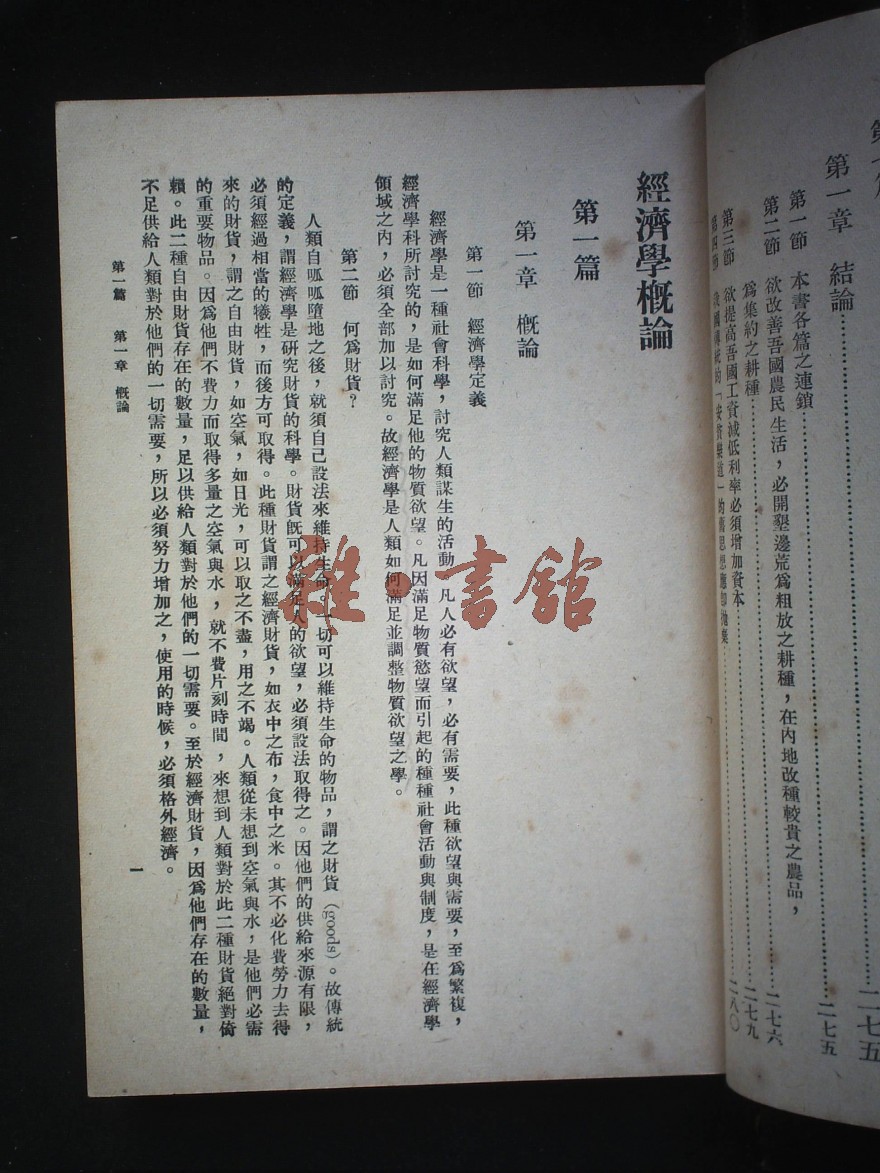 第一章　結論…………二七五
第一節　本書各篇之連鎖…………二七五
第二節　欲改善吾國農民生活，必開墾邊荒爲粗放之耕種，在內地改種較貴之農品，
爲集約之耕種…………二七六
第三節　欲提高吾國工資減低利率必須增加資本…………二七九
第四節　我國傳統的「安貧樂道」的舊思想應卽拋棄…………二八〇
經濟學概論
第一篇
第一章　概論
第一節　經濟學定義
經濟學是一種社會科學，討究人類謀生的活動。凡人必有欲望，必有需要，此種欲望與需要，至爲繁複，
經濟學科所討究的，是如何滿足他的物質欲望。凡因滿足物質慾望而引起的種種社會活動與制度，是在經濟學
領域之內，必須全部加以討究。故經濟學是人類如何滿足並調整物質欲望之學。
第二節　何爲財貨？
人類自呱呱墮地之後，就須自己設法來維持生命。一切可以維持生命的物品，謂之財貨（goods）。故傳統
的定義，謂經濟學是研究財貨的科學。財貨旣可以滿足人的欲望，必須設法取得之。因他們的供給來源有限，
必須經過相當的犧牲，而後方可取得。此種財貨謂之經濟財貨，如衣中之布，食中之米。其不必化費勞力去得
來的財貨，謂之自由財貨，如空氣，如日光，可以取之不盡，用之不竭。人類從未想到空氣與水，是他們必需
的重要物品。因爲他們不費力而取得多量之空氣與水，就不費片刻時間，來想到人類對於此二種財貨絕對倚
賴。此二種自由財貨存在的數量，足以供給人類對於他們的一切需要。至於經濟財貨，因爲他們存在的數量，
不足供給人類對於他們的一切需要，所以必須努力增加之，使用的時候，必須格外經濟。
第一篇　第一章　概論
一
雜·書館